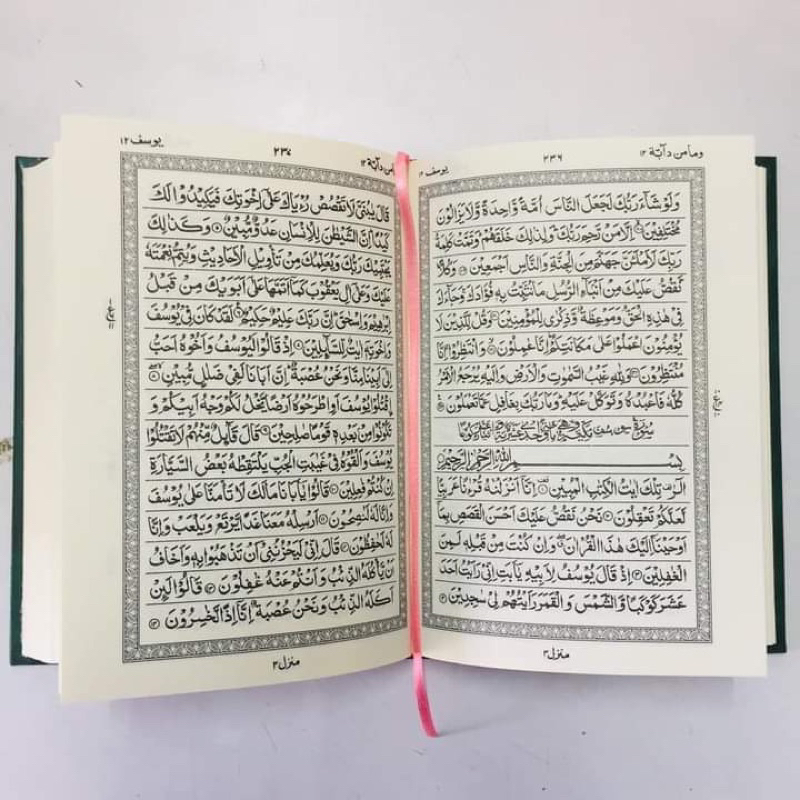 وما من دآبة ١٢ ٢٣٦ يوسف
وَلَوْ شَآءَ رَبُّكَ لَجَعَلَ النَّاسَ اُمَّةً وَّاحِدَةً وَّلَا يَزَالُوْنَ
مُخْتَلِفِيْنَ اِلَّا مَنْ رَّحِمَ رَبُّكَ وَلِذٰلِكَ خَلَقَهُمْ وَتَمَّتْ كَلِمَةُ
رَبِّكَ لَاَمْلَئَنَّ جَهَنَّمَ مِنَ الْجِنَّةِ وَالنَّاسِ اَجْمَعِيْنَ وَكُلًّا
نَّقُصُّ عَلَيْكَ مِنْ اَنْۢبَآءِ الرُّسُلِ مَا نُثَبِّتُ بِهٖ فُؤَادَكَ وَجَآءَكَ
فِيْ هٰذِهِ الْحَقُّ وَمَوْعِظَةٌ وَّذِكْرٰى لِلْمُؤْمِنِيْنَ وَقُلْ لِّلَّذِيْنَ لَا
يُؤْمِنُوْنَ اعْمَلُوْا عَلٰى مَكَانَتِكُمْ اِنَّا عٰمِلُوْنَ وَانْتَظِرُوْا اِنَّا
مُنْتَظِرُوْنَ وَلِلّٰهِ غَيْبُ السَّمٰوٰتِ وَالْاَرْضِ وَاِلَيْهِ يُرْجَعُ الْاَمْرُ
كُلُّهٗ فَاعْبُدْهُ وَتَوَكَّلْ عَلَيْهِ وَمَا رَبُّكَ بِغَافِلٍ عَمَّا تَعْمَلُوْنَ
بِسْمِ اللّٰهِ الرَّحْمٰنِ الرَّحِيْمِ
الٓرٰ تِلْكَ اٰيٰتُ الْكِتٰبِ الْمُبِيْنِ اِنَّا اَنْزَلْنٰهُ قُرْءٰنًا عَرَبِيًّا
لَّعَلَّكُمْ تَعْقِلُوْنَ نَحْنُ نَقُصُّ عَلَيْكَ اَحْسَنَ الْقَصَصِ بِمَا
اَوْحَيْنَا اِلَيْكَ هٰذَا الْقُرْاٰنَ وَاِنْ كُنْتَ مِنْ قَبْلِهٖ لَمِنَ
الْغٰفِلِيْنَ اِذْ قَالَ يُوْسُفُ لِاَبِيْهِ يٰٓاَبَتِ اِنِّيْ رَاَيْتُ اَحَدَ
عَشَرَ كَوْكَبًا وَّالشَّمْسَ وَالْقَمَرَ رَاَيْتُهُمْ لِيْ سٰجِدِيْنَ
منزل ٣
من دآبة ١٢ ٢٣٧ يوسف ١٢
قَالَ يٰبُنَيَّ لَا تَقْصُصْ رُءْيَاكَ عَلٰٓى اِخْوَتِكَ فَيَكِيْدُوْا لَكَ
كَيْدًا اِنَّ الشَّيْطٰنَ لِلْاِنْسَانِ عَدُوٌّ مُّبِيْنٌ وَكَذٰلِكَ
يَجْتَبِيْكَ رَبُّكَ وَيُعَلِّمُكَ مِنْ تَاْوِيْلِ الْاَحَادِيْثِ وَيُتِمُّ نِعْمَتَهٗ
عَلَيْكَ وَعَلٰٓى اٰلِ يَعْقُوْبَ كَمَآ اَتَمَّهَا عَلٰٓى اَبَوَيْكَ مِنْ قَبْلُ
اِبْرٰهِيْمَ وَاِسْحٰقَ اِنَّ رَبَّكَ عَلِيْمٌ حَكِيْمٌ لَقَدْ كَانَ فِيْ يُوْسُفَ
وَاِخْوَتِهٖٓ اٰيٰتٌ لِّلسَّآئِلِيْنَ اِذْ قَالُوْا لَيُوْسُفُ وَاَخُوْهُ اَحَبُّ
اِلٰٓى اَبِيْنَا مِنَّا وَنَحْنُ عُصْبَةٌ اِنَّ اَبَانَا لَفِيْ ضَلٰلٍ مُّبِيْنِ
اقْتُلُوْا يُوْسُفَ اَوِ اطْرَحُوْهُ اَرْضًا يَّخْلُ لَكُمْ وَجْهُ اَبِيْكُمْ وَ
تَكُوْنُوْا مِنْۢ بَعْدِهٖ قَوْمًا صٰلِحِيْنَ قَالَ قَآئِلٌ مِّنْهُمْ لَا تَقْتُلُوْا
يُوْسُفَ وَاَلْقُوْهُ فِيْ غَيٰبَتِ الْجُبِّ يَلْتَقِطْهُ بَعْضُ السَّيَّارَةِ
اِنْ كُنْتُمْ فٰعِلِيْنَ قَالُوْا يٰٓاَبَانَا مَا لَكَ لَا تَاْمَنَّا عَلٰى يُوْسُفَ
وَاِنَّا لَهٗ لَنٰصِحُوْنَ اَرْسِلْهُ مَعَنَا غَدًا يَّرْتَعْ وَيَلْعَبْ وَاِنَّا
لَهٗ لَحٰفِظُوْنَ قَالَ اِنِّيْ لَيَحْزُنُنِيْٓ اَنْ تَذْهَبُوْا بِهٖ وَاَخَافُ
اَنْ يَّاْكُلَهُ الذِّئْبُ وَاَنْتُمْ عَنْهُ غٰفِلُوْنَ قَالُوْا لَئِنْ
اَكَلَهُ الذِّئْبُ وَنَحْنُ عُصْبَةٌ اِنَّآ اِذًا لَّخٰسِرُوْنَ
منزل ٣